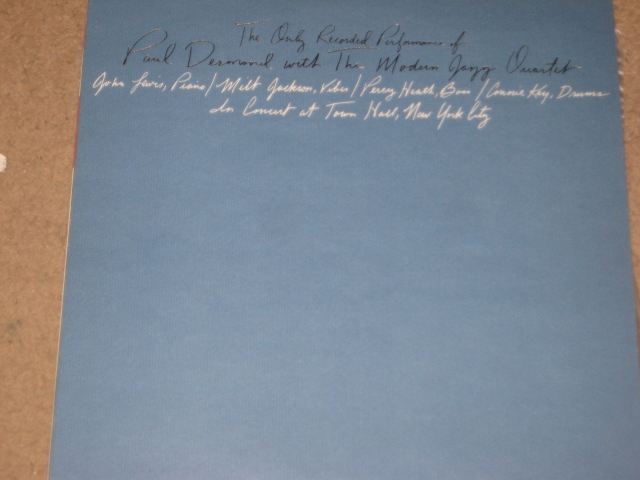 The Only Recorded Performance of
Paul Desmond with The Modern Jazz Quartet
John Lewis, Piano/Milt Jackson, Vibes/Percy Heath, Bass/Connie Kay, Drums
In Concert at Town Hall, New York City